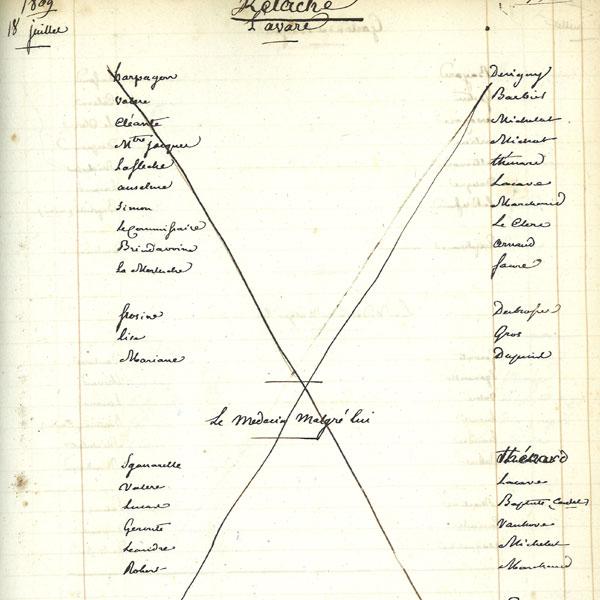 1809
18 juillet
Relache
L'avare
harpagon Devigny
Valere Barbier
Cléante Michelot
Mtre jacques Michot
Lafleche thénard
anselme Lacave
Simon Marchand
le Commissaire Le Clerc
Brindavoine arnaud
La Merluche faure
frosine
lise Gros
Mariane Dupuis
Le Medecin Malgré lui
Sganarelle thénard
Valere Lacave
Lucas Baptiste Cadet
Geronte Vanhove
Leandre Michelot
Robert Marchand